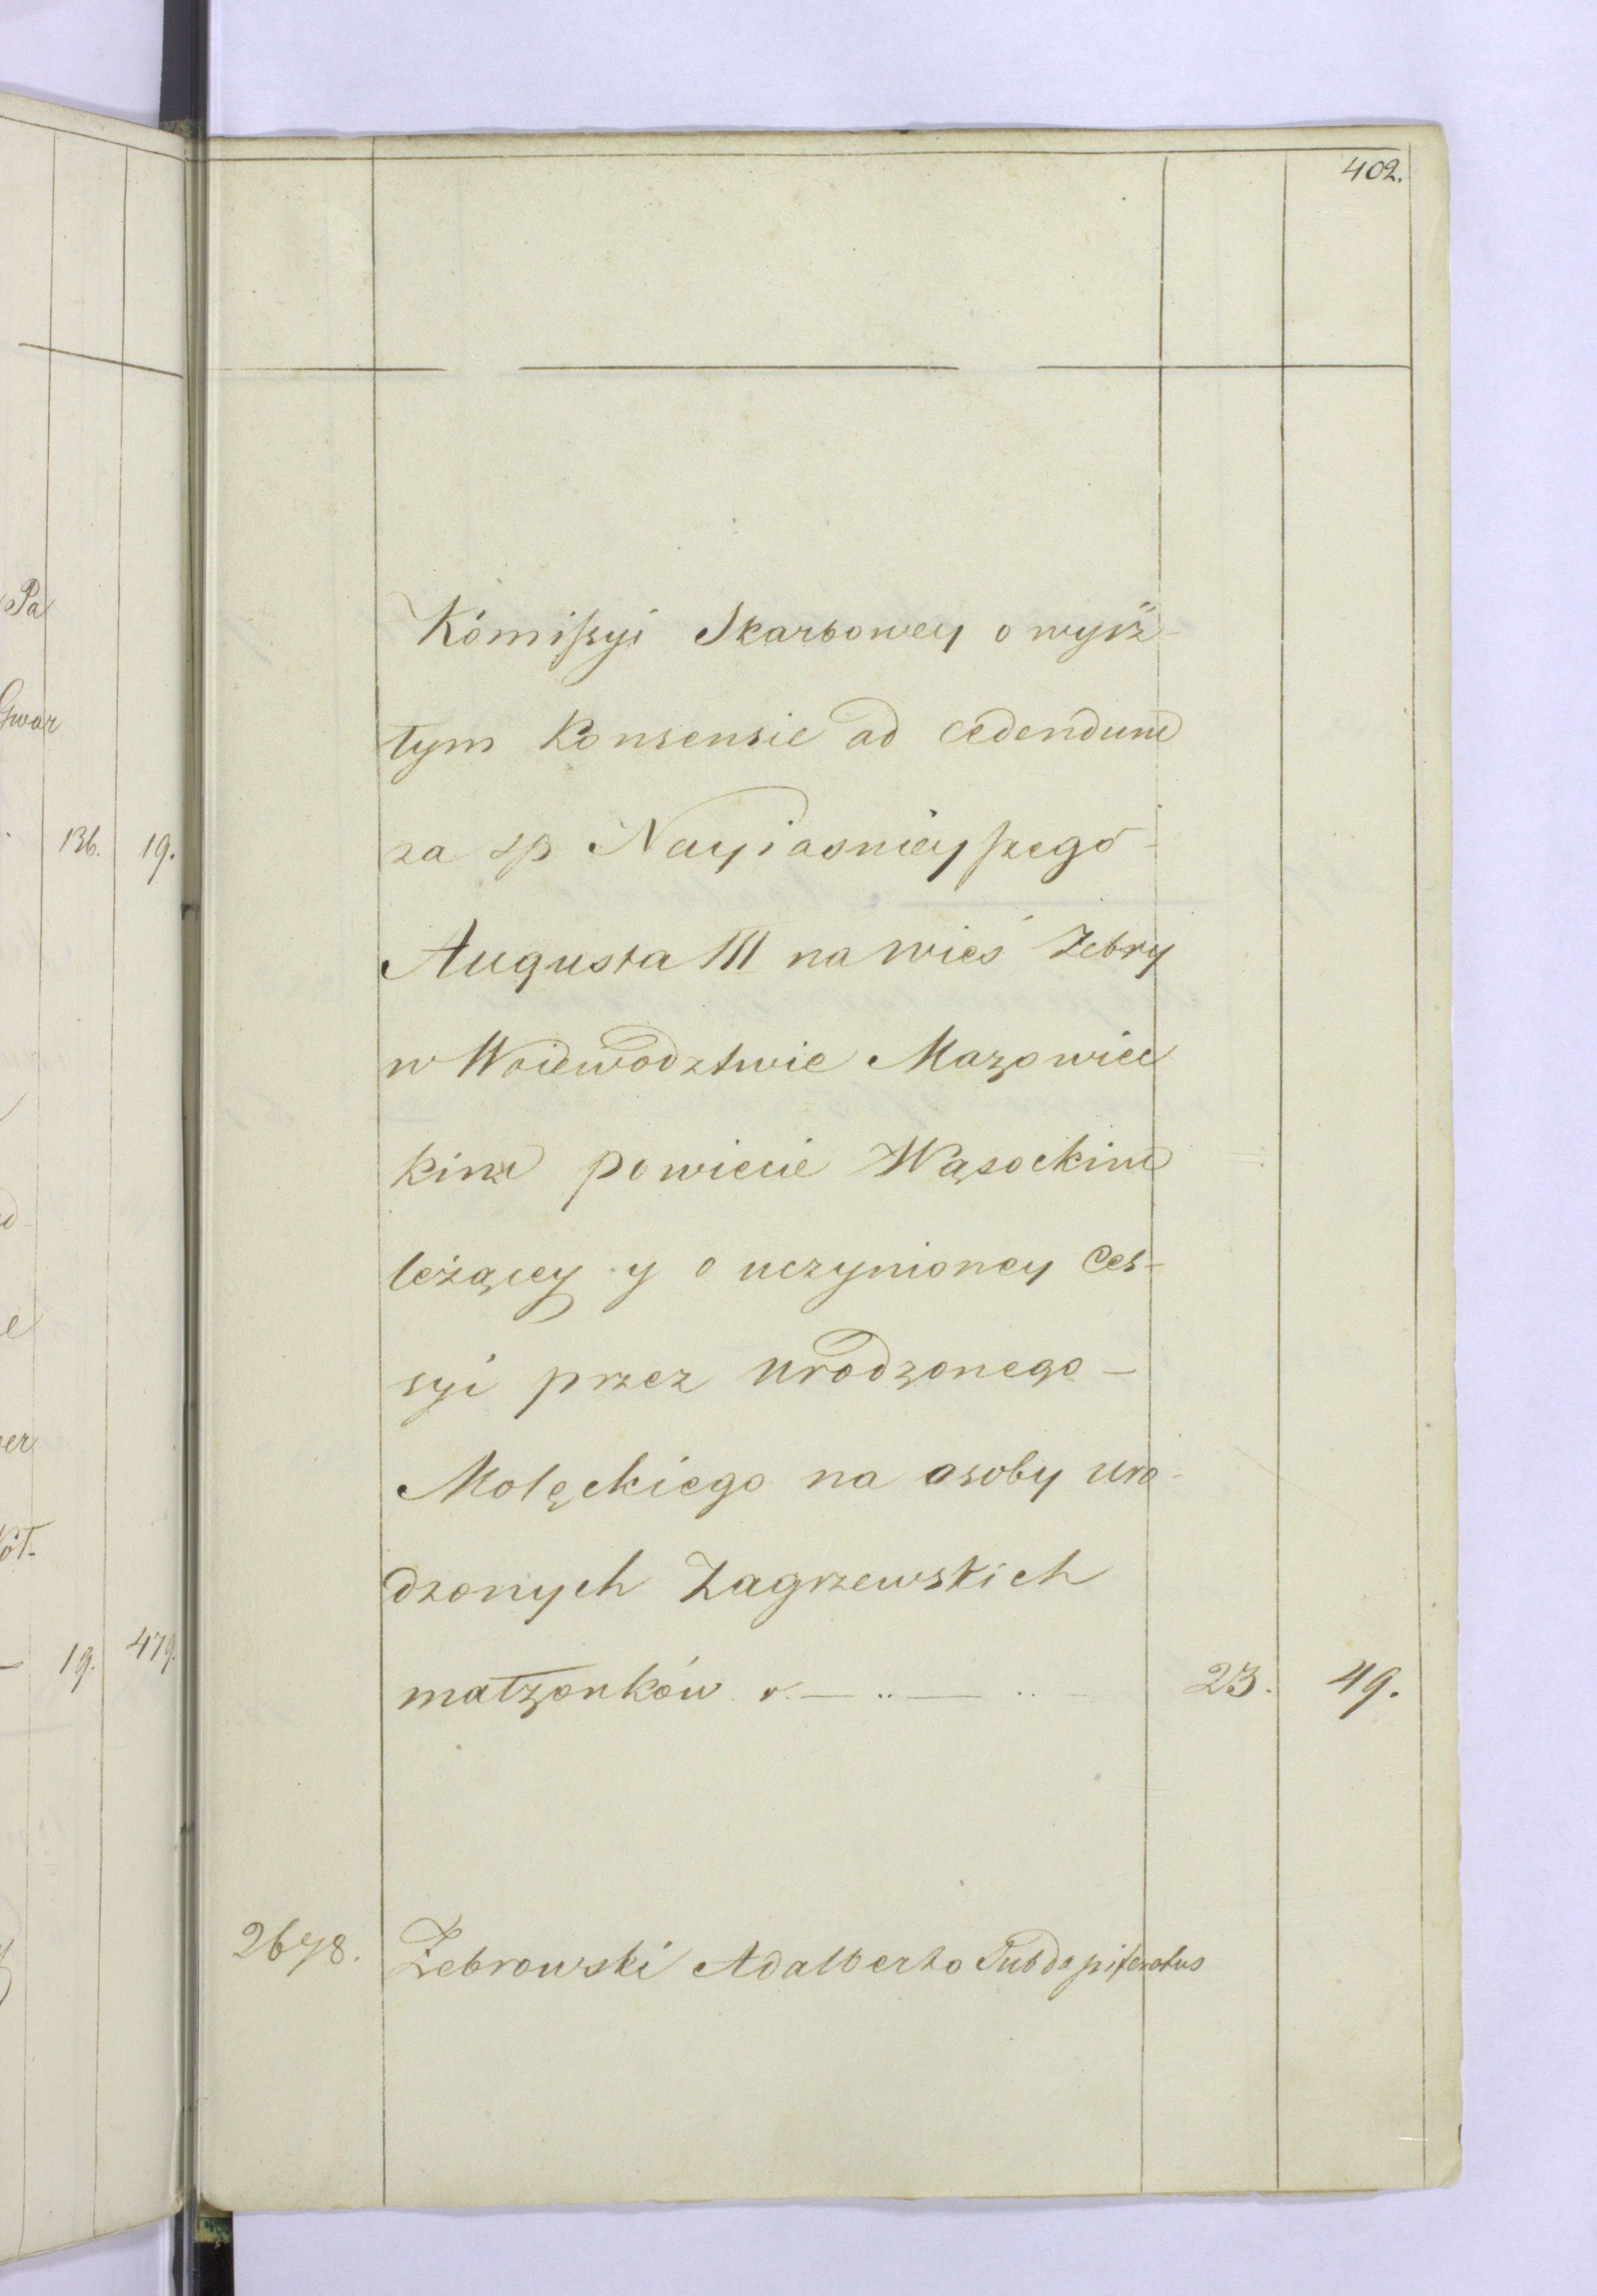 402.
Kómissyi Skarbowey o wyiż-
łym Konsensie ad cedendum
za sp Nayiasnieyszego -
Augusta III na wieś Żebry
w Woiewodztwie Mazowiec
kim powiecie Wąsockim
leżącey y o uczynioney Ces-
syi przez urodzonego -
Molęckiego na osoby uro-
dzonych Zagrzewskich
małzonków 23. 49.
2678. Żebrowski Adalberto Subdapiferatus
Pa
Gwar
136. 19.
er
19. 479.